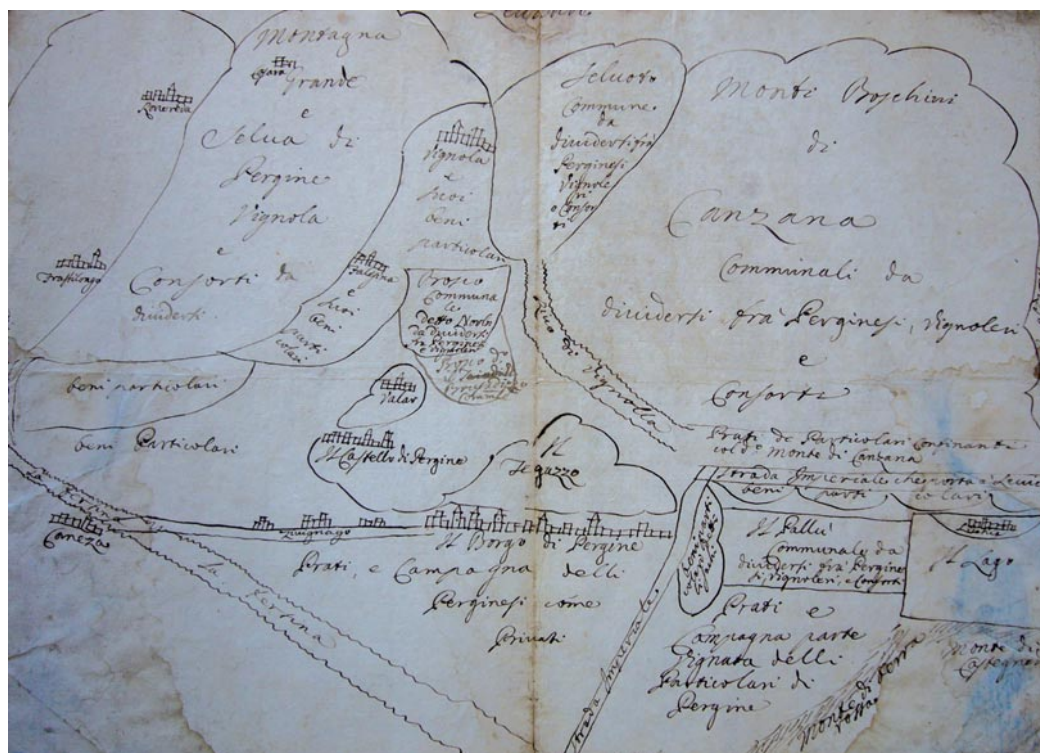 Montagna
Grande
e
Selva di
Pergine
Vignola
e
Consorti da
dividersi.
Roveréda
Frassilongo
Vignola
e
suoi
beni
particolari
Falesina
e
suoi
beni
parti
colari
Commune
da
dividersi frà
Perginesi
Vignole
ri
e Consor
ti
Monti Boschivi
di
Canzana
Communali da
dividersi frà Perginesi, Vignoleri
e
Consorti
Communa
le
da dividersi
e Vignoleri
Rivo di Vignolla
beni particolari
beni Particolari
Valar
Il Castello di Pergine
Il
Teguzzo
Prati de Particolari Confinanti
col d.º Monte di Canzana
Strada Imperiale che porta à
beni parti colari
La Fersina
Caneza
Zivignago
Il Borgo di Pergine
Prati, e Campagna delli
Perginesi come
Privati
La Fersina
Strada Imperiale
Il Pallù
Communale da
dividersi frà Pergine
si, Vignoleri, e Consorti
Il Lago
Prati e
Campagna parte
Vignata delli
Particolari di
Pergine
Monte di